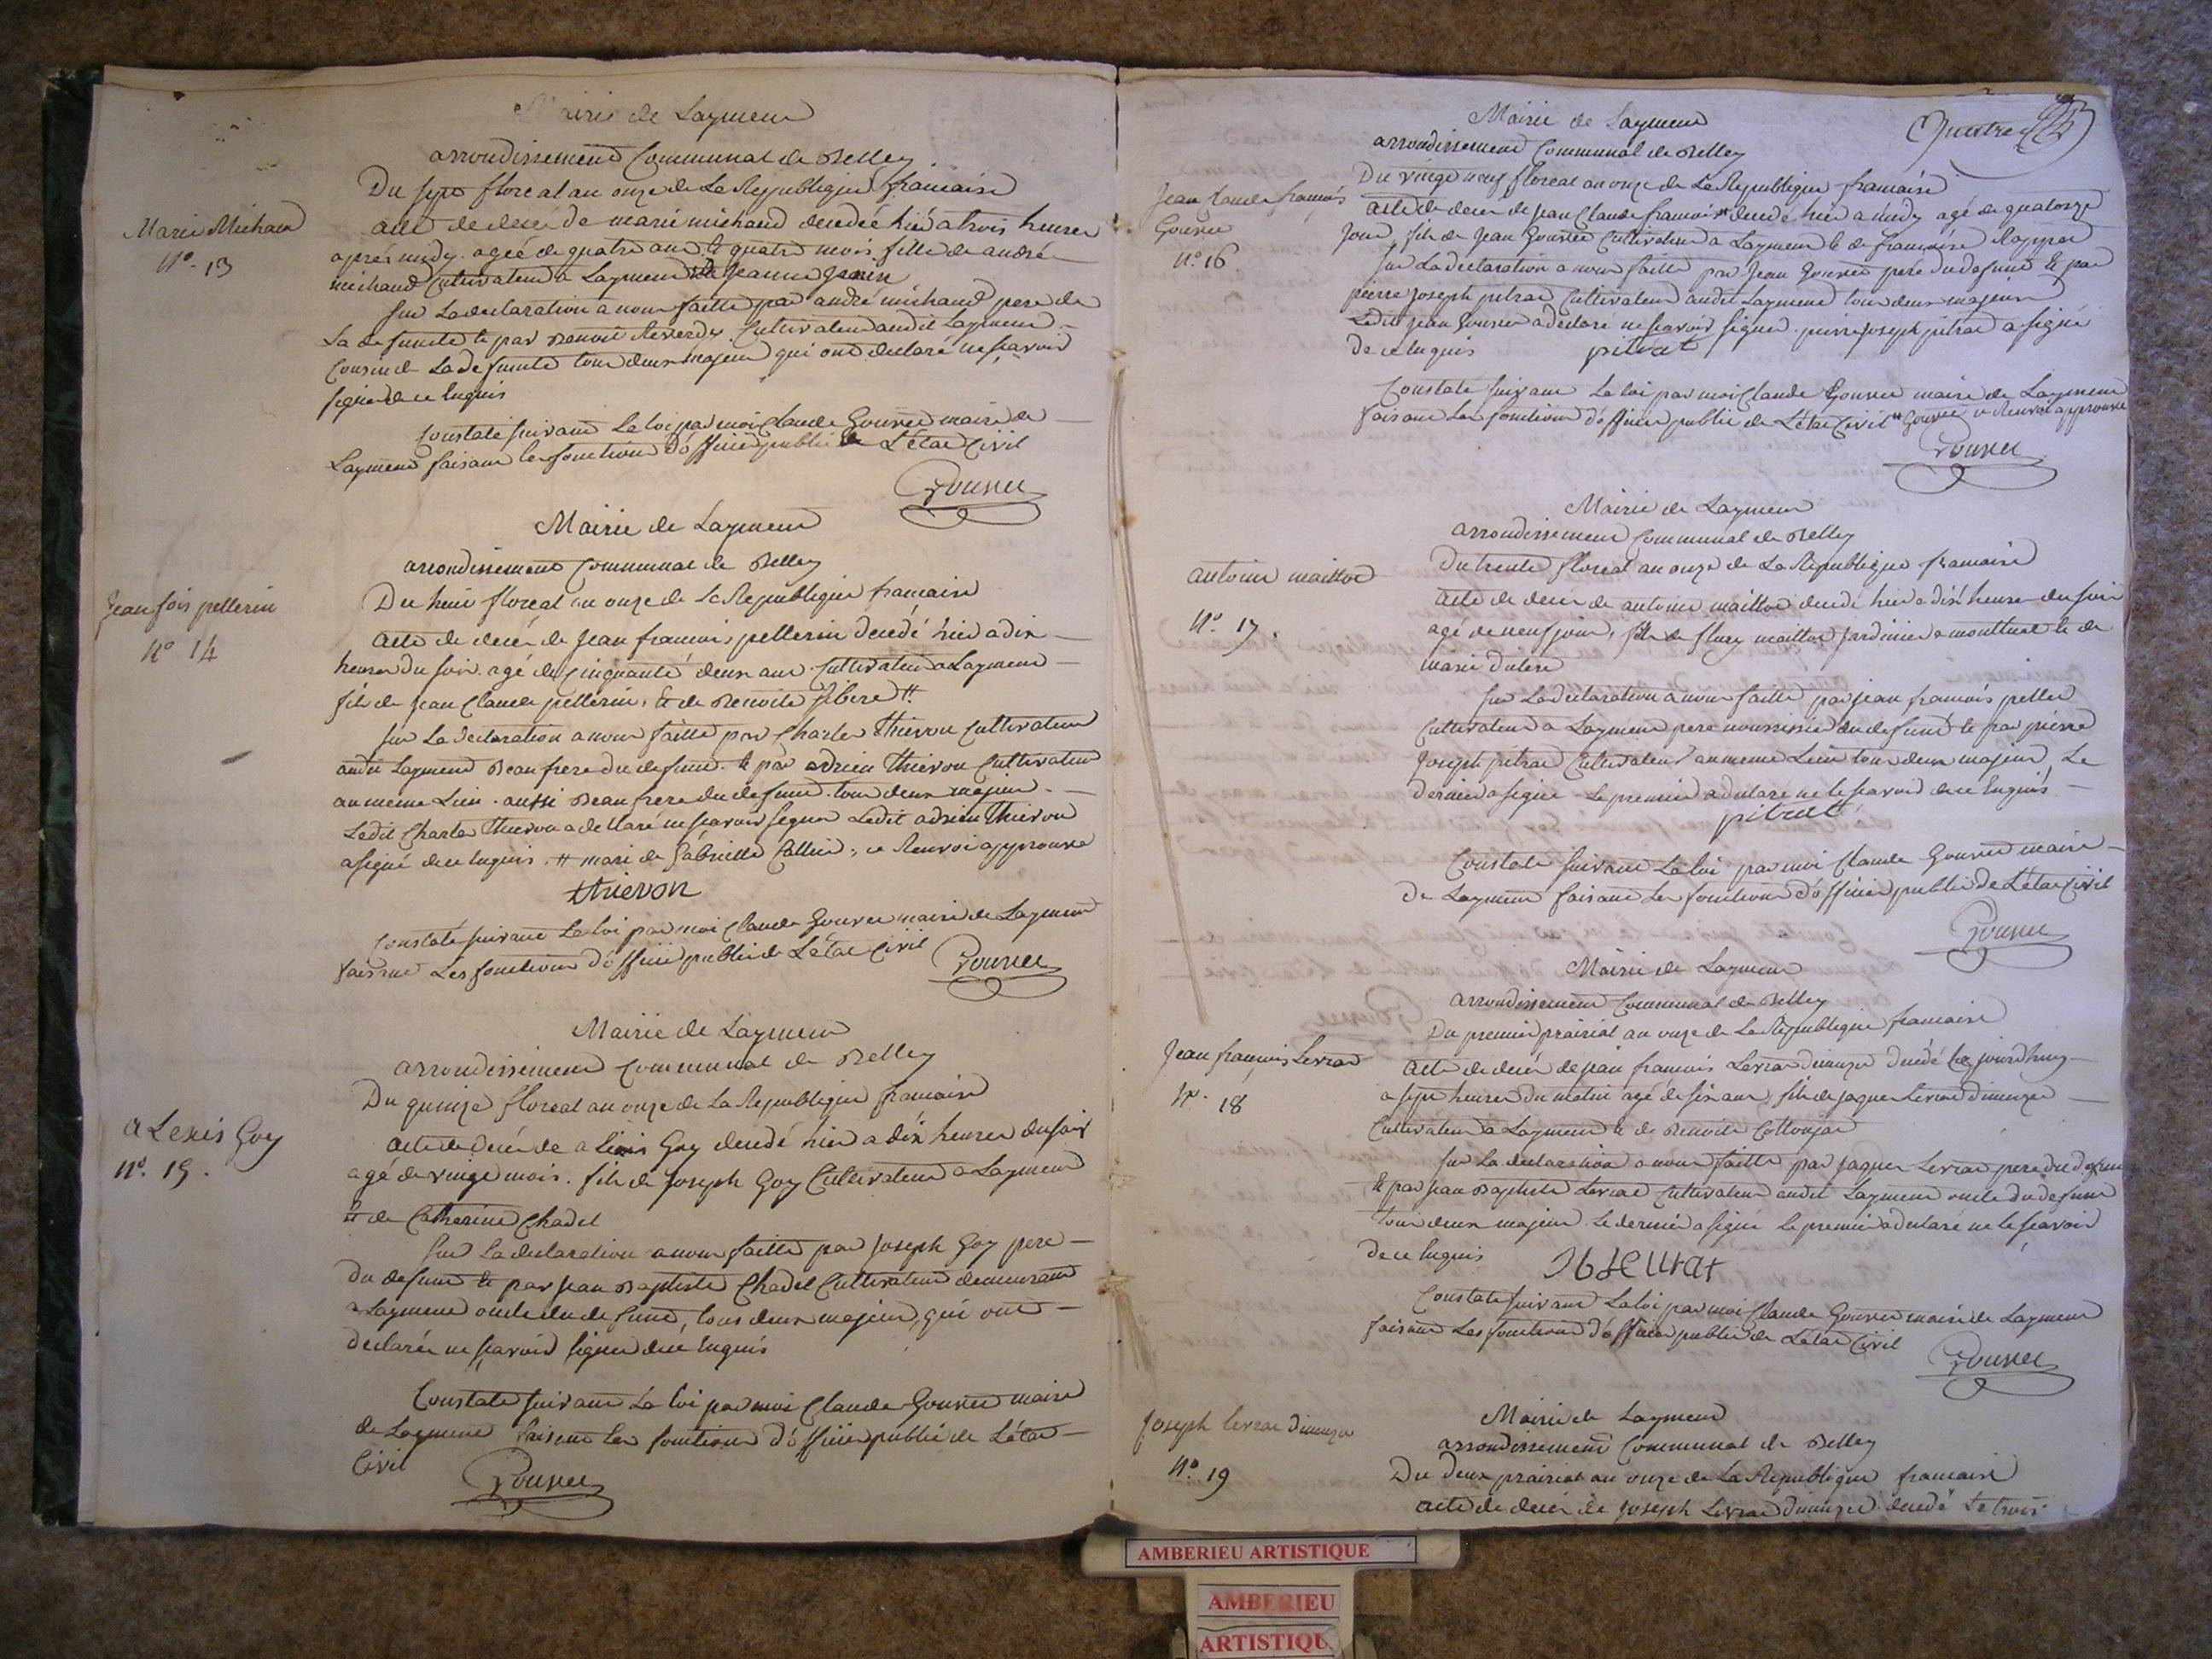 Mairie de Laymens
arrondissement Communal de Belley
Du sept floreal an onze de La Republique francaise
Marie Michaud
N°. 13
acte de decès de marie michaud decedée hier a trois heures
après midy. agée de quatre ans et quatre mois. fille de andré
michaud Cultivateur a Laymens et de Jeanne Janin
sur La declaration a nous faitte par andré michaud pere de
La defunte et par Benoit Reverdy Cultivateur audit Laymens
Cousin de La defunte tous deux majeurs qui ont declaré ne sçavoir
signer de ce enquis
Constaté suivant La loi par moi Claude Gourree maire de
Laymens faisant les fonctions d'officier public de L'état Civil
Gourree
Mairie de Laymens
arrondissement Communal de Belley
Jean fois pellerin
N° 14
Du huit floreal an onze de La Republique francaise
acte de decès de Jean francois pellerin decedé hier a dix
heures du soir. agé de Cinquante deux ans Cultivateur a Laymens
fils de Jean Claude pellerin, et de Benoite #
sur La declaration a nous faitte par Charles thievon Cultivateur
audit Laymens Beau frere du defunt. et par adrien thievon Cultivateur
au meme Lieu. aussi Beau frere du defunt. tous deux majeurs.
Ledit Charles thievon a declaré ne sçavoir signer Ledit adrien thievon
a signé de ce enquis. # mari de Gabrielle ce Renvoi approuvé
thievon
Constaté suivant La loi par moi Claude Gourree maire de Laymens
faisant Les fonctions d'officier public de L'état Civil
Gourree
Mairie de Laymens
arrondissement Communal de Belley
Du quinze floreal an onze de La Republique francaise
aLexis Goy
N°. 15.
acte de decès de alexis Goy decedé hier a dix heures du soir
agé de vingt mois. fils de Joseph Goy Cultivateur a Laymens
et de Catherine Chadel
sur La declaration a nous faitte par Joseph Goy pere
du defunt et par Jean Baptiste Chadel Cultivateur demeurant
a Laymens oncle du defunt, tous deux majeurs, qui ont
declarés ne sçavoir signer de ce enquis
Constaté suivant La loi par moi Claude Gourree maire
de Laymens faisant les fonctions d'officier public de L'état
Civil
Gourree
Mairie de Laymens
arrondissement Communal de Belley
Du vingt neuf floreal an onze de La Republique francaise
Jean Claude françois
Gourree
N° 16
acte de decès de Jean Claude francois # decedé hier a midy agé de quatorze
jours, fils de Jean Gourree Cultivateur a Laymens et de francoise
sur La declaration a nous faitte par Jean Gourree pere du defunt et par
pierre Joseph pitrat Cultivateur audit Laymens tous deux majeurs
Ledit Jean Gourree a declaré ne sçavoir signer. pierre Joseph pitrat a signé
de ce enquis pitrat
Constaté suivant La loi par moi Claude Gourree maire de Laymens
faisant les fonctions d'officier public de L'état Civil # Gourree ce Renvoi approuvé
Gourree
Mairie de Laymens
arrondissement Communal de Belley
Du trente floreal an onze de La Republique francaise
antoine maittot
N°. 17.
acte de decès de antoine maittot decedé hier a dix heures du soir
agé de neuf jours, fils de flury maittot jardinier a montluel et de
marie
sur La declaration a nous faitte par jean francois
Cultivateur a Laymens pere nourrissier du defunt et par pierre
Joseph pitrat Cultivateur au meme Lieu tous deux majeurs, Le
dernier a signé Le premier a declaré ne le sçavoir de ce enquis
pitrat
Constaté suivant La loi par moi Claude Gourree maire
de Laymens faisant les fonctions d'officier public de L'état Civil
Gourree
Mairie de Laymens
arrondissement Communal de Belley
Du premier prairial an onze de La Republique francaise
Jean françois Levrat
N°. 18
acte de decès de jean francois Levrat dimuze decedé ce jourdhuy
a sept heures du matin agé de six ans, fils de jaques Levrat dimuze
Cultivateur a Laymens et de Benoite
sur La declaration a nous faitte par Jaques Levrat pere du defunt
et par Jean Baptiste Levrat Cultivateur audit Laymens oncle du defunt
tous deux majeurs. Le dernier a signé Le premier a declaré ne le sçavoir
de ce enquis
Constaté suivant La loi par moi Claude Gourree maire de Laymens
faisant Les fonctions d'officier public de L'état Civil
Gourree
Mairie de Laymens
arrondissement Communal de Belley
Joseph levrat dimuze
N°. 19
Du deux prairial an onze de La Republique francaise
acte de decès de Joseph Levrat dimuze. decedé Le trois
AMBERIEU ARTISTIQUE
AMBERIEU
ARTISTIQU